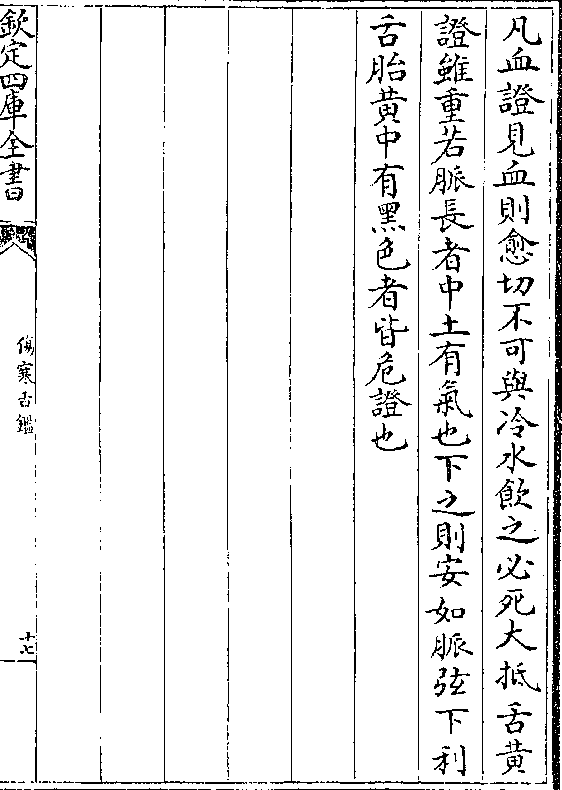 凡血證見血則愈切不可與冷水飲之必死大抵舌黄
證雖重若脈長者中土有氣也下之則安如脈弦下利
舌胎黄中有黑色者皆危證也
欽定四庫全書
傷寒舌鑑
十七